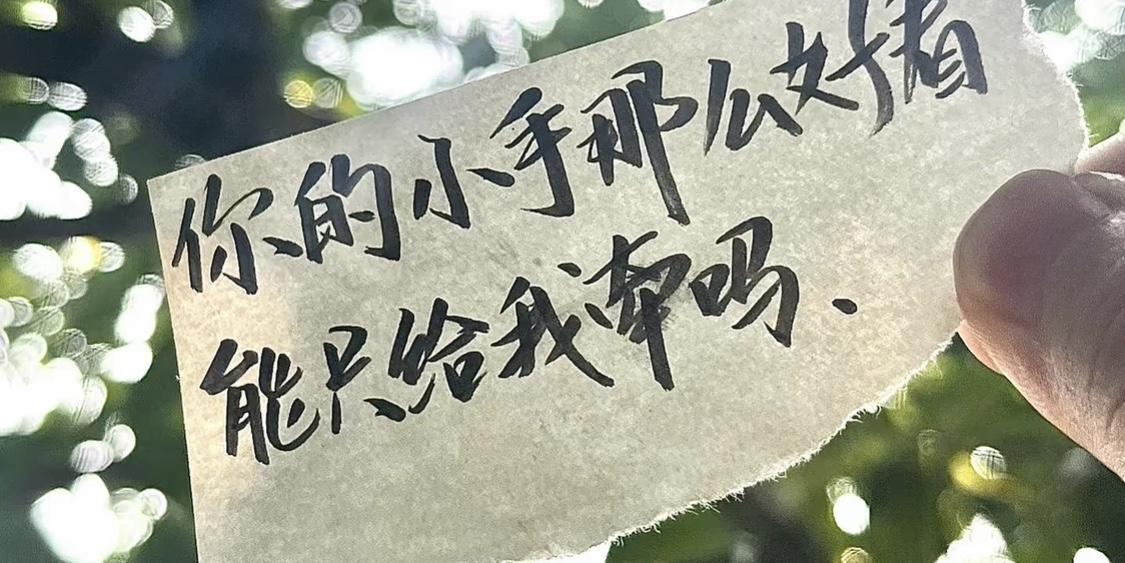 你的小手那么好看
能只给我牵吗.